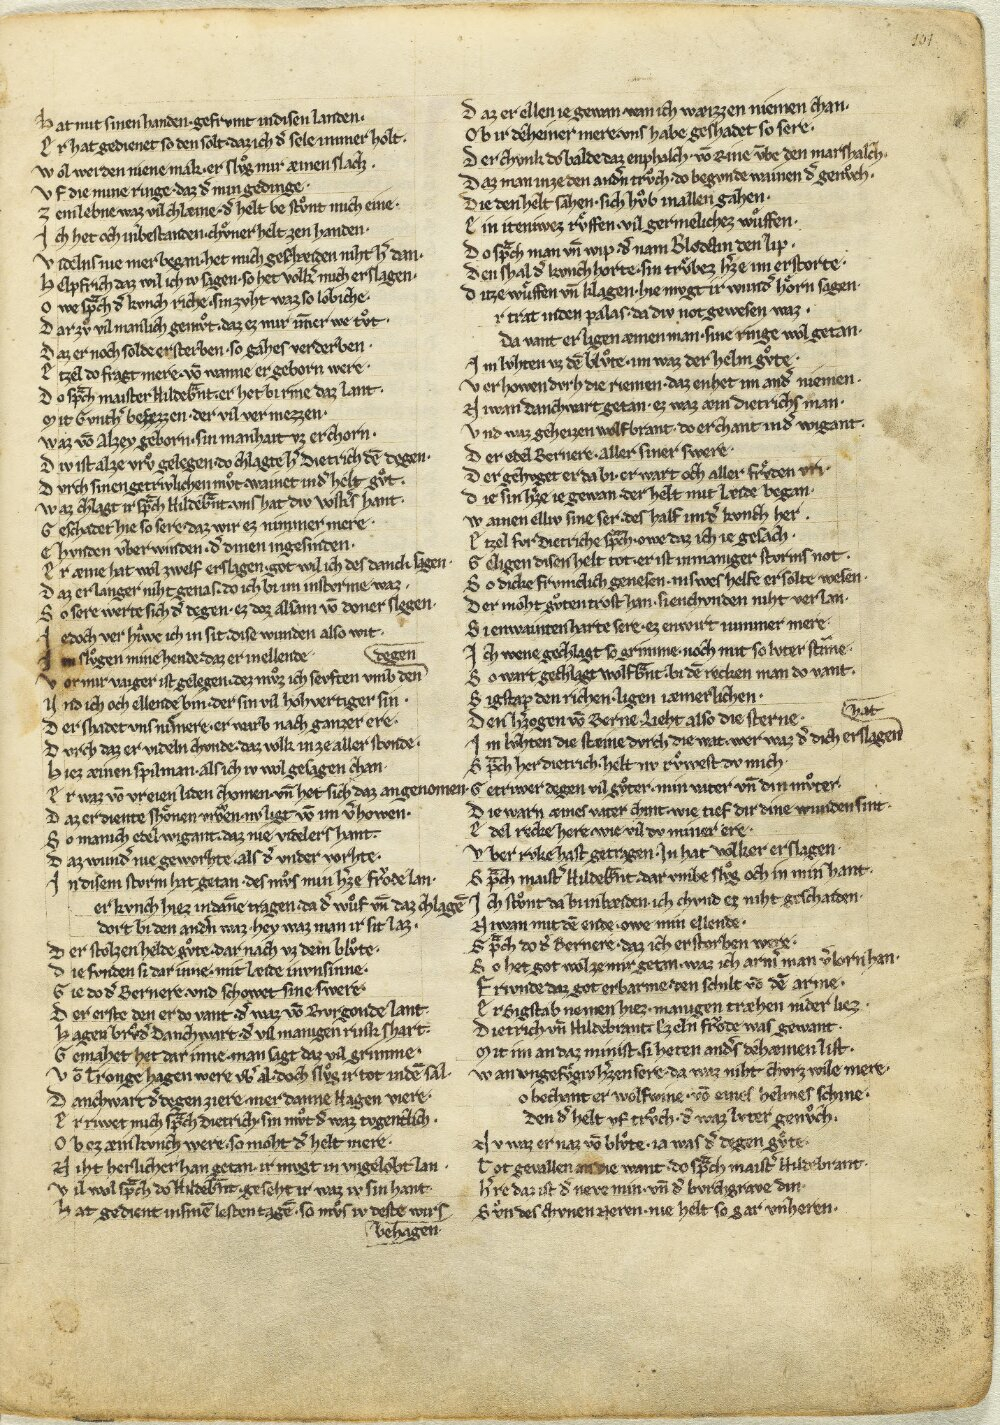 101
Hat mit sinen handen · gefrvmt in disen landen ·
Er hat gedienet so den solt · daz ich d̾ sele immer holt ·
Wol weiden niene mak · er slv̊g mir æinen slach ·
Vf die mine ringe · daz d̾ min gedinge ·
Zem lebne waz vil chlæine · d̾ helt bestv̊nt mich eine ·
Ich het och in bestanden · chv̊ner helt zen handen ·
Videlns nie mer began · het mich gescheiden niht h̾ dan ·
Helpfrich daz wil ich iv sagen · so het volk̾ mich erslagen ·
Owe sp̄ch d̾ kvnch riche · sin zvht waz so lobiche ·
Dar zv̊ vil manlich gemv̊t · daz ez mir im̄er we tv̊t ·
Daz er noch solde ersterben · so gahes verderben ·
Etzel do fragt mere · vō wanne er geborn were ·
Do sp̄ch maister Hildeb̄nt · er het bi rine daz lant ·
Mit Gvnth̾ besezzen · der vil vermezzen ·
Waz vō Alzey geborn · sin manhait vz erchorn ·
Div ist alze vrv̊ gelegen · do chlagte h̾ Dietrich dē degen ·
Dvrch sinen getriwlichen mv̊t · wainet in d̾ helt gv̊t ·
Waz chlagt ir sp̄ch Hildeb̄nt · vns hat div volk̾s hant ·
Geschadet hie so sere · daz wir ez nimmer mere ·
Chvnden vberwinden · d̾ dinen ingesinden ·
Er æine hat wol zwelf erslagen · got wil ich des danch sagen ·
Daz er langer niht genas · do ich bi im in storme waz ·
So sere werte sich d̾ degen · ez doz alsam vō doner slegen ·
Iedoch verhiwe ich in sit · dise wunden also wit ·
Im slv̊gen mine hende · daz er in ellende
degen
Vor mir vaiger ist gelegen · dez mv̊z ich sevften vmb den
Vnd ich och ellende bin · der sin vil hohvertiger sin ·
Der shadet vns nim̄ere · er warb nach ganzer ere ·
Dvrch daz er videln chvnde · daz volk in ze aller stvnde ·
Hiez æinen spilman · als ich iv wol gesagen chan ·
Er waz vō vreien liden chomen · vn̄ het sich daz angenomen ·
Daz er diente shonen vrowen · nv ligt vō im v̾howen ·
So manich edel wigant · daz nie videlers hant ·
Daz wund̾ nie geworhte · als d̾ vnder vorhte ·
In disem storm hat getan · des mv̊s min h̾ze frv̊de lan ·
er kvnch hiez in danē tragen · da d̾ wuf vn̄ daz chlagē
dort bi den and̾n waz · hey waz man ir sit laz ·
Der stolzen helde gv̊te · dar nach vz dem blv̊te ·
Die fvnden si dar inne · mit læide in vnsinne ·
Gie do d̾ Bernere · vnd schowet sine swere ·
Der erste den er do vant · d̾ waz vō Bvrgonde lant
Hagen brv̊d̾ Danchwart · d̾ vil manigen rink shart ·
Gemahet het dar inne · man sagt daz vil grimme ·
Vō Tronge hagen were vb̾ al · doch slv̊g ir tot in dē sal ·
Danchwart d̾ degen ziere · mer danne Hagen viere ·
Er riwet mich sp̄ch Dietrich · sin mv̊t d̾ waz tvgentlich ·
Ob ez æin kvnch were · so moht d̾ helt mere ·
Niht herlicher han getan · ir mvgt in vngelobt lan ·
Vil wol sp̄ch do Hildeb̄nt · geseht ir waz iv sin hant ·
Hat gedient in sinē lesten tagē · so mv̊s iv deste wirs
behagen ·
Daz er ellen ie gewan · wan ich wæizzen niemen chan ·
Ob ir deheiner mere · vns habe geshadet so sere ·
Der chvnk do balde daz enphalch · vō Rine vbe den marshalch ·
Daz man in ze den and̾n trv̊ch · do begvnde wainen d̾ genv̊ch ·
Die den helt sahen · sich hv̊b in allen gahen ·
Ein iteniwez rv̊ffen · vil germelichez wv̊ffen ·
Do sp̄ch man vn̄ wip · d̾ nam Blodelin den lip ·
Den shal d̾ kvnch horte · sin trv̊bez h̾ze im erstorte ·
Ditze wv̊ffen vn̄ klagen · hie mvgt ir wund̾ horn sagen
r trat in den palas · da div not gewesen waz ·
Da vant er ligen æinen man · sine ringe wol getan ·
Im lvhten vz dē blv̊te · im waz der helm gv̊te ·
Verhowen dvrh die riemen · daz enhet im and̾ niemen ·
Niwan danchwart getan · ez waz æin dietrichs man ·
Vnd waz geheizen wolfbrant · do erchant in d̾ wigant ·
Der edel Bernere · aller siner swere ·
Der gehvget er da bi · er wart och aller frv̊den vri ·
Die sin h̾ze ie gewan · der helt mit læide began ·
Wainen elliv sine ser · des half im d̾ kvnch her ·
Etzel for dietriche sp̄ch · owe daz ich ie gesach ·
Seligen disen helt tot · er ist in maniger storms not ·
So dicke frvmchich genesen · mi swes helfe er solte wesen ·
Der moht gv̊ten trost han · sien chvnden niht verlan ·
Sien wainten harte sere · ez enwirt nimmer mere ·
Ich wene gechlagt so grimme · noch mit so lvter stīme ·
So wart gechlagt wolfb̄nt · bi dē recken man do vant ·
Sigstap den richen · ligen iæmerlichen ·
Den h̾zogen vō Berne · Lieht also die sterne ·
hat
Im lvhten die stæine dvrch die wat · wer waz d̾ dich erslagen
Sp̄ch her dietrich · helt nv rv̊west dv mich ·
Getriwer degen vil gv̊ter · min vater vn̄ din mv̊ter ·
Die warn æines vater chint · wie tief dir dine wunden sint ·
Edel recke here · wie vil dv miner ere ·
Vber rvke hast getragen · In hat volker erslagen ·
Sp̄ch maist̾ Hildeb̄nt · dar vmbe slv̊g och in min hant ·
Ich stv̊nt da bi in læiden · ich chvnd ez niht geschaiden ·
Niwan mit dē ende · owe min ellende ·
Sp̄ch do d̾ Bernere · daz ich erstorben were ·
So het got wol ze mir getan · waz ich arm̾ man v̾lorn han ·
Friunde daz got erbarme · den schilt vō dē arme ·
Er Sigstab nemen hiez · manigen træhen nider liez ·
Dietrich vn̄ Hildebrant · Ezeln frv̊de was gewant ·
Mit im an daz minist · si heten and̾s dehæinen list ·
Wan vngefv̊giv h̾zensere · da waz niht chorz wile mere ·
o bechant er wolfwine · vō eines helmes schine ·
Den d̾ helt vf trv̊ch · d̾ waz lvter genv̊ch ·
Nv waz er naz vō blv̊te · ia was d̾ degen gv̊te ·
Tot gevallen an die want · do sp̄ch maist̾ Hildebrant ·
H̾re daz ist d̾ neve min · vn̄ d̾ bvrchgrave din ·
Sv̊n des chvnen Neren · nie helt so gar vnheren ·